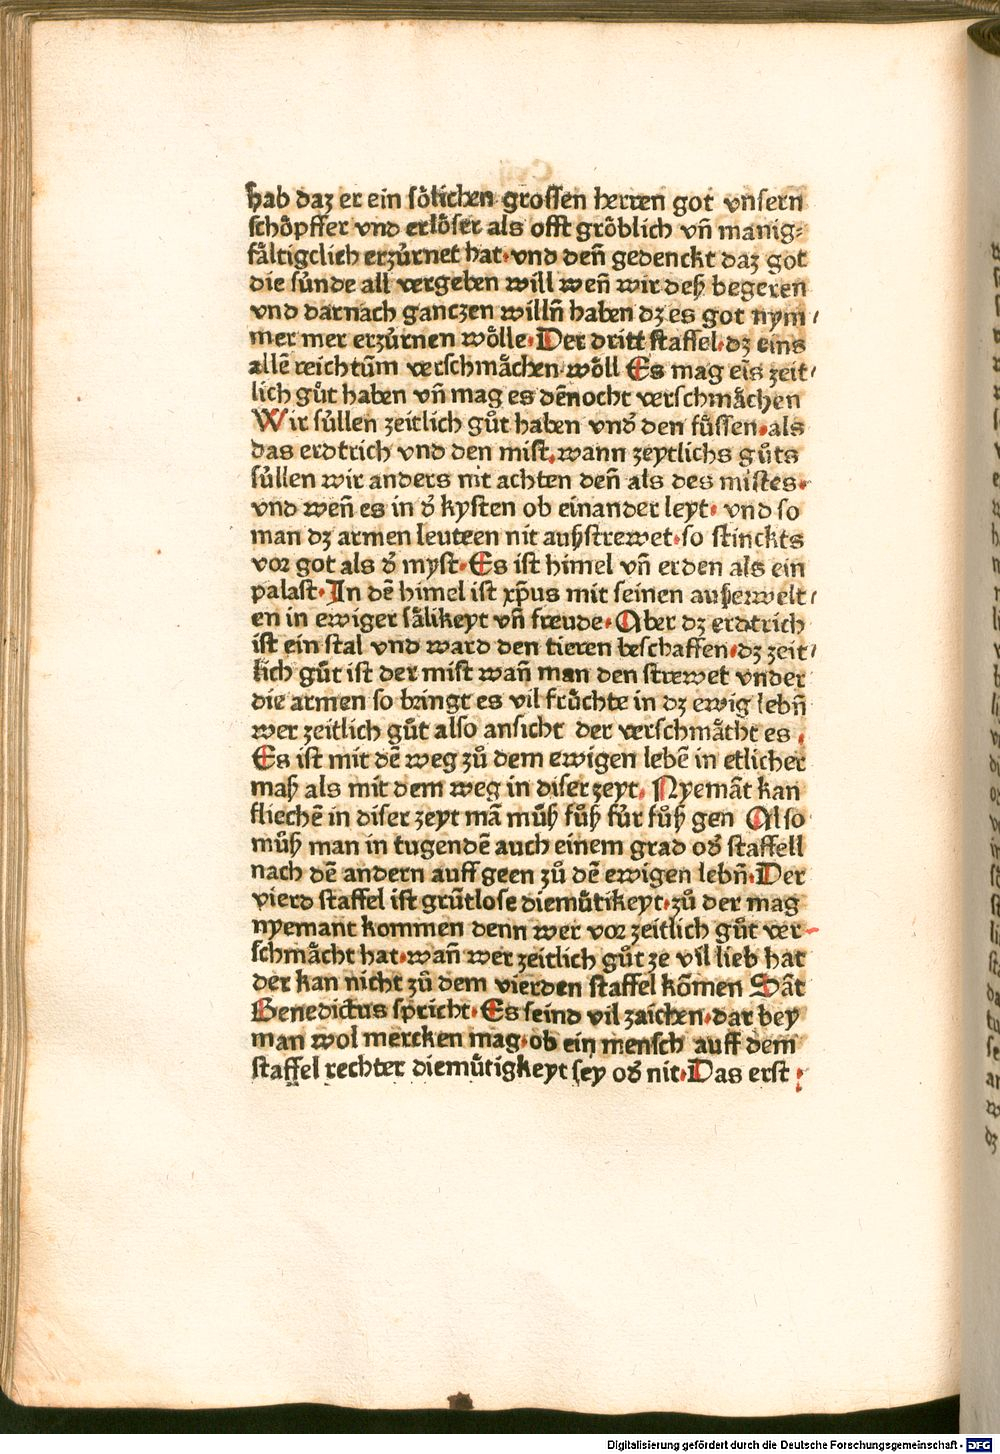 hab daz er ein soͤlichen grossen herren got vnsern
schoͤpffer vnd erloͤser als offt groͤblich vñ manig⸗
faͤltigclich erzuͤrnet hat· vnd deñ gedenckt daz got
die suͤnde all vergeben will weñ wir deß begeren
vnd darnach ganczen willñ haben dz es got nym⸗
mer mer erzuͤrnen woͤlle· Der dritt staffel· dz eins
allē reichtūm verschmaͤchen woͤll Es mag eīs zeit⸗
lich guͦt haben vñ mag es dēnocht verschmaͤchen
Wir suͤllen zeitlich guͦt haben vnd̛ den fuͤssen· als
das erdtrich vnd den mist· wann zeytlichs guͦts
suͤllen wir anders nit achten deñ als des mistes·
vnd weñ es in d̛ kysten ob einander leyt· vnd so
man dz armen leuteen nit außstrewet· so stinckts
vor got als d̛ myst· Es ist himel vñ erden als ein
palast· In dē himel ist xp̄us mit seinen außerwelt⸗
en in ewiger saͤlikeyt vñ freude· Aber dz erdtrich
ist ein stal vnd ward den tieren beschaffen· dz zeit⸗
lich guͦt ist der mist wañ man den strewet vnder
die armen so bringt es vil fruͤchte in dz ewig lebñ
wer zeitlich guͦt also ansicht der verschmaͤcht es ·
Es ist mit dē weg zuͦ dem ewigen lebē in etlicher
maß als mit dem weg in diser zeyt· Nyemāt kan
fliechē in diser zeyt mā muͤß fuͦß fuͤr fuͦß gen Also
muͤß man in tugendē auch einem grad od̛ staffell
nach dē andern auff geen zuͦ dē ewigen lebñ· Der
vierd staffel ist grūtlose diemuͤtikeyt· zuͦ der mag
nyemant kommen denn wer vor zeitlich guͦt ver-
schmaͤcht hat· wañ wer zeitlich guͦt ze vil lieb hat
der kan nicht zuͦ dem vierden staffel kōmen Sāt
Benedictus spricht· Es seind vil zaichen· dar bey
man wol mercken mag· ob ein mensch auff dem
staffel rechter diemuͤtigkeyt sey od̛ nit· Das erst :
Digitalisierung gefördert durch die Deutsche Forschungsgemeinschaft - DFG